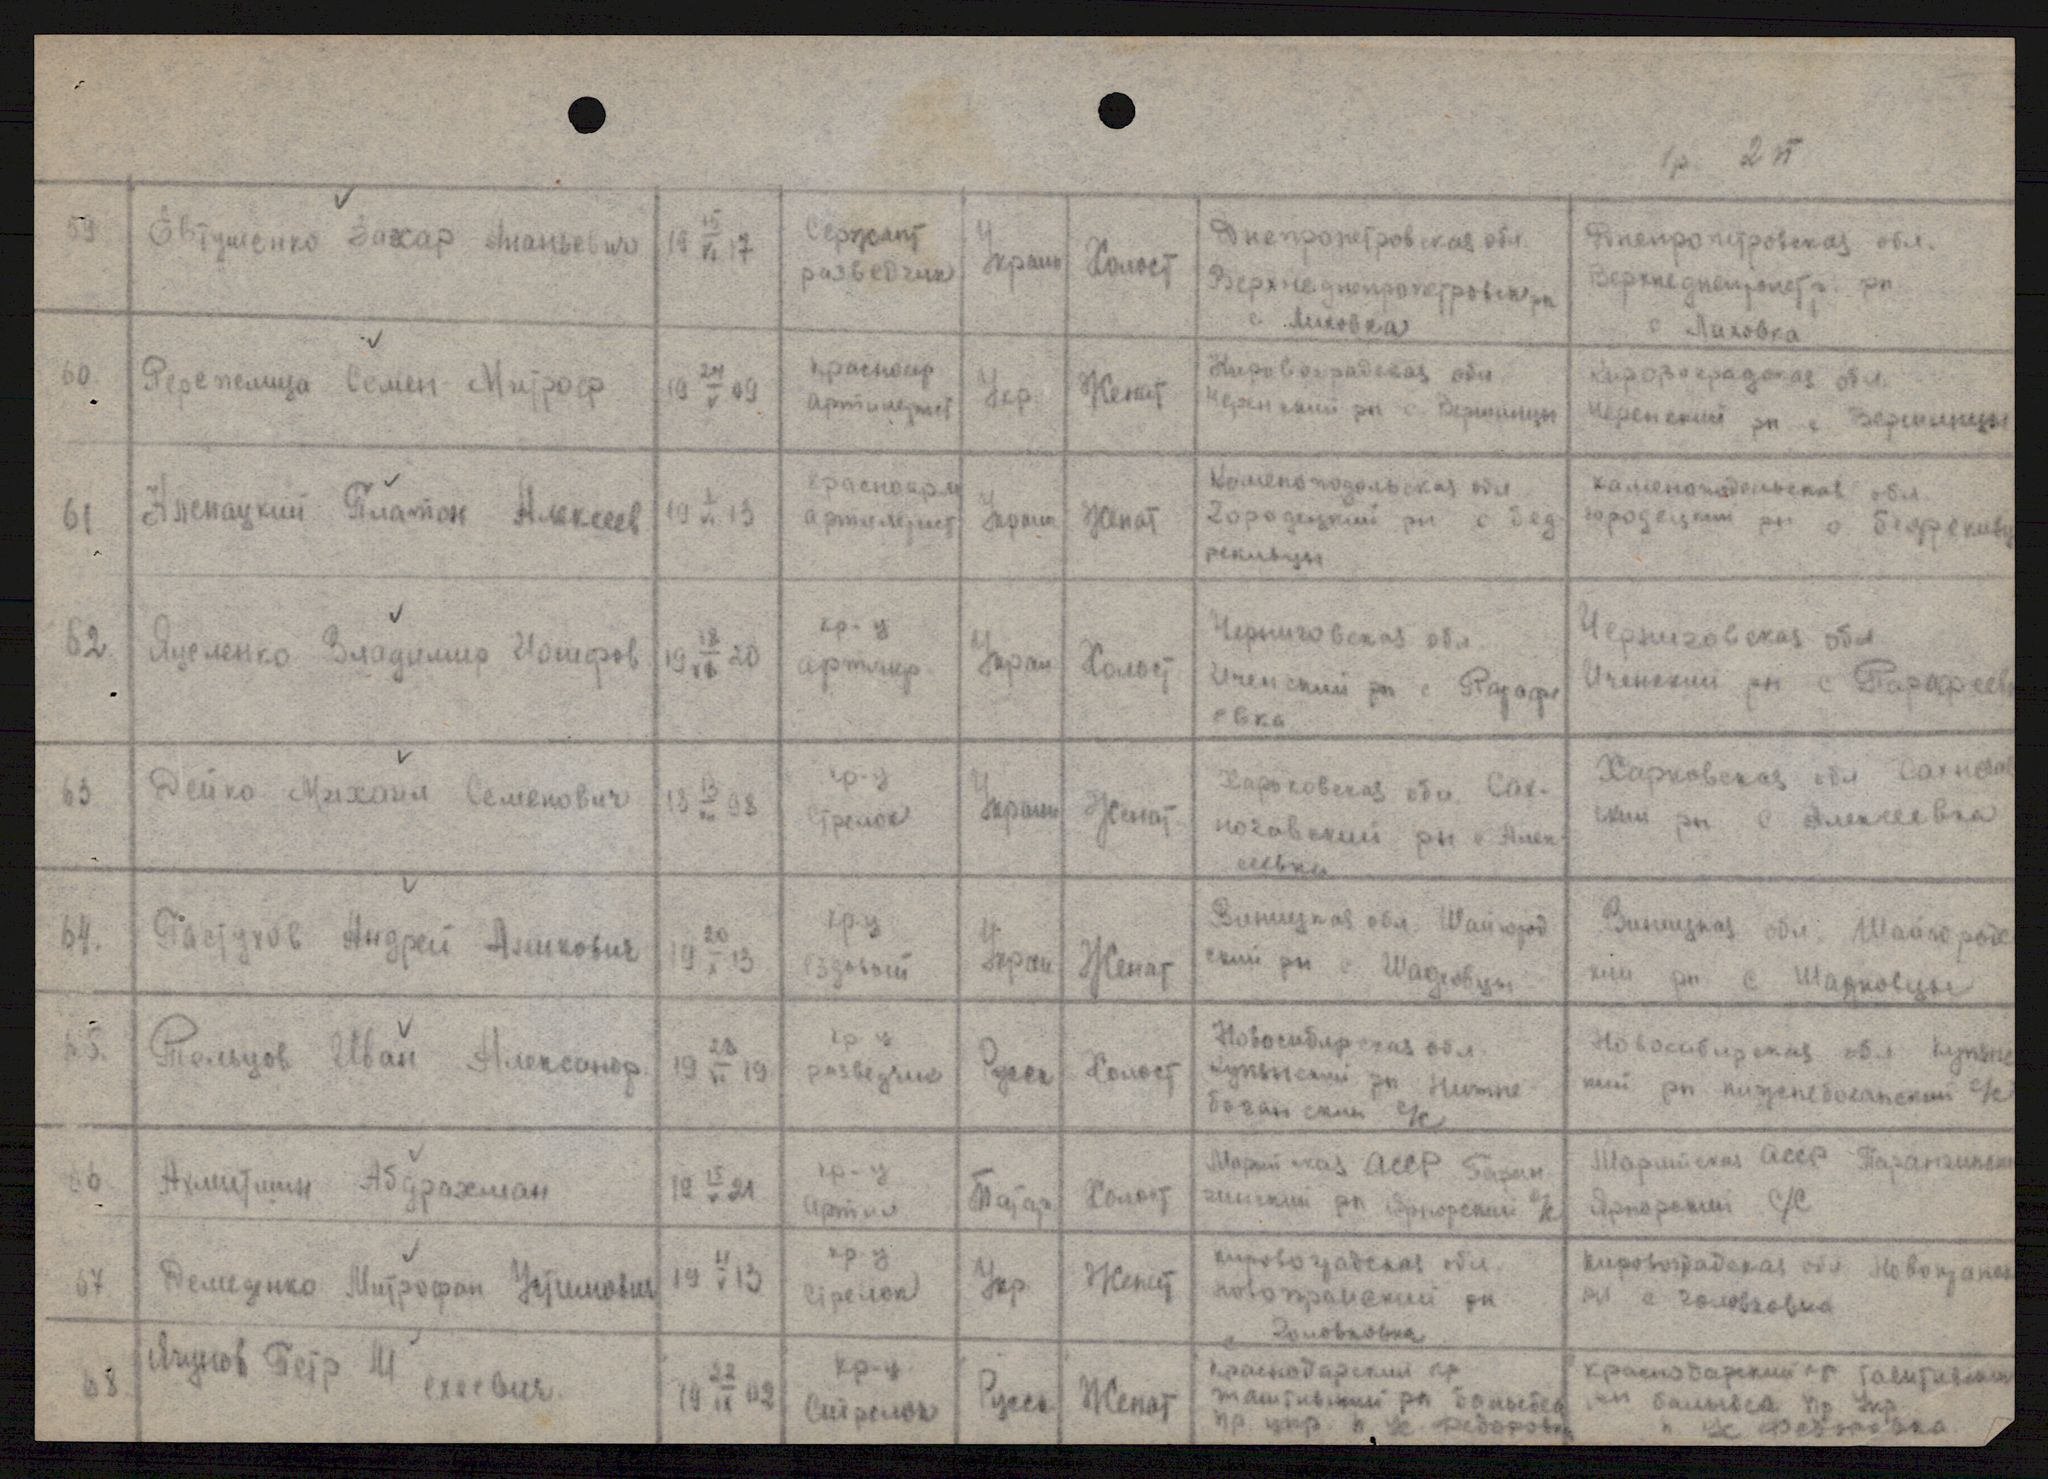 гр. 2 п
59 Овтушенко Захар Ананьевич 19 15/VI 17 Сержант разведчик Украин Холост Днепропетровская обл. Верхнеднепропетровск рн с Лиховка Днепропетровская обл. Верхнеднепропетр. рн с Лиховка
60 Перепелица Семен Митроф 19 24/V 09 красноар артилерист Укр. Женат Кировоградская обл. рн с Вершинцы Кировоградская обл. рн с Вершинцы
61 Платон Алексеев 19 13 красноарм артилерист Украин Женат Каменоподольская обл Городецкий рн с Бед рековцы каменоподольская обл городецкий рн с
62. Яценко Владимир Иосифов 19 18 20 кр-ц артилер Украи Холост Черниговская обл Иченский рн с Парафе евка Черниговская обл Иченский рн с Парафеев
63 Дейко Михаил Семенович 18 13 98 кр-ц Стрелок Украин Женат Харьковская обл. Сах- новский рн с Алек сеевка Харковская обл Сахновав ский рн с Алексеевка
64. Пастухов Андрей Аликович 19 20/X 13 кр-ц ездовый Украи Женат Виницкая обл. Шайгород ский рн с Шадковцы Виницкая обл. Шайгородс кий рн с Шадковцы
65. Польцов Иван Александр. 19 28 19 кр-ц разведчик Русск Холост Новосибирская обл. Купинский рн Нижне боганский с/с Новосибирская обл купинс кий рн нижнебоганский с/с
66 Ахмитшин Абдрахман 19 15/V 21 кр-ц Артил Татар Холост Марийская АССР Паран гинский рн с/с Марийская АССР Парангинский с/с
67. Демеденко Митрофан Устимович 19 11/V 13 кр-ц Стрелок Укр Женат кировоградская обл. новопраиский рн с Головковка кировоградская обл Новопраис рн с головковка
68 Ягунов Петр М ехеевич 19 22/IX 02 кр-ц Стрелок Русск Женат краснодарский кр рн п/с Федоровка краснодарский кр рн п/с Федоровка